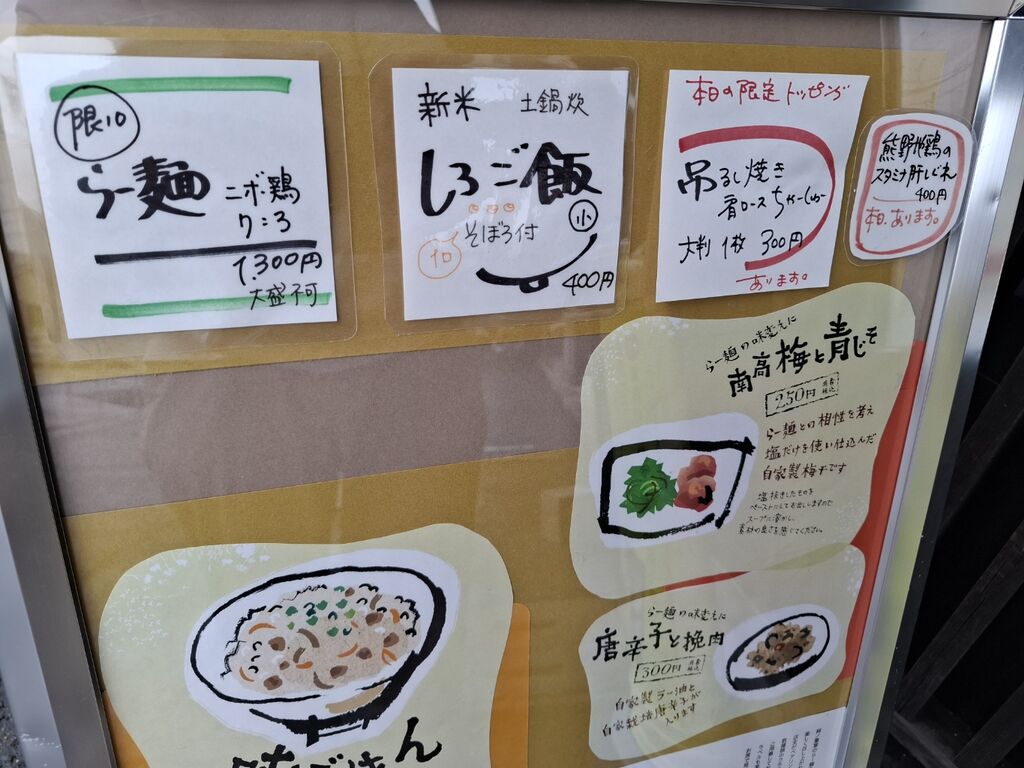 限10
らー麺
ニボ鶏
7:3
1,300円
大盛不可
新米 土鍋炊
しろご飯
小
そぼろ付
10
400円
本日の限定トッピング
吊るし焼き
肩ロースちゃーしゅー
大判1枚300円
あります。
熊野地鶏の
スタミナ肝しぐれ
400円
本日、あります。
らー麺の味変えに
南高梅と青じそ
250円
らー麺との相性を考え
塩だけを使い仕込んだ
自家製梅干です
塩抜きしたものを
ペーストにしてお出ししますので
スープに溶かし、
素材の良さを感じてください。
らー麺の味変えに
唐辛子と挽肉
300円
自家製ラー油と
自家栽培唐辛子が
入ります
味ごはん